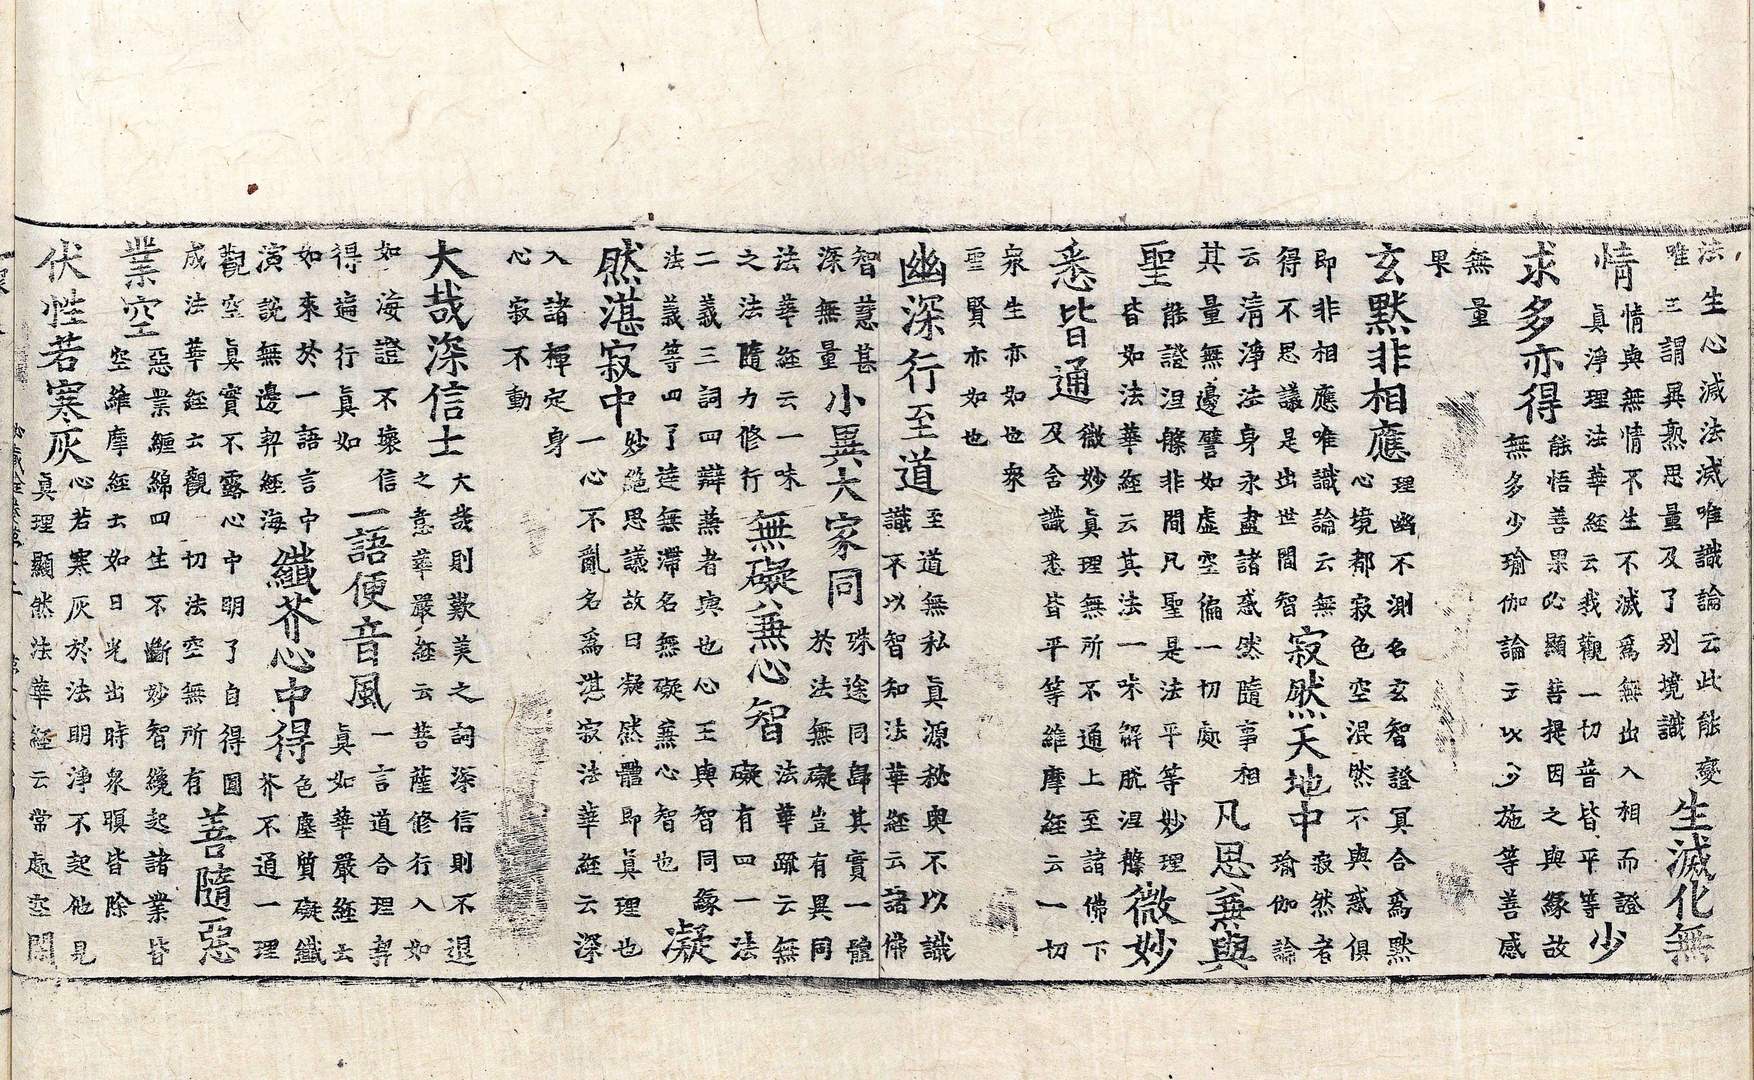 法生心滅法滅唯識論云此能變
唯三謂異熟思量及了別境識
生滅化無
情
情與無情不生不滅爲無出入相而證
真淨理法華經云我觀一切普皆平等
少
求多亦得
能悟善果必顯善提因之與緣故
無多少瑜伽論云以少施等善感
無量
果
玄默非相應
理幽不測名玄智證冥合爲默
心境都寂色空混然不與惑俱
即非相應唯識論云無
得不思議是出世間智
寂然天地中
寂然者
瑜伽論
云清淨法身永盡諸惑然隨事相
其量無邊譬如虛空徧一切處
凡思兼與
聖
能證涅槃非間凡聖是法平等妙理
皆如法華經云其法一味解脫涅槃
微妙
悉皆通
微妙真理無所不通上至諸佛下
及舍識悉皆平等維摩經云一切
衆生亦如也衆
聖賢亦如也
幽深行至道
至道無私真源秘奧不以識
識不以智知法華經云諸佛
智慧甚
深無量
小異大家同
殊途同歸其實一體
於法無礙豈有異同
法華經云一味
之法隨力修行
無礙兼心智
法華疏云無
礙有四一法
二義三詞四辯兼者與也心王與智同緣
法義等四了達無滯名無礙兼心智也
凝
然湛寂中
妙絕思議故曰凝然體即真理也
一心不亂名爲湛寂法華經云深
入諸禪定身
心寂不動
大哉深信士
大哉則歎美之詞深信則不退
之意華嚴經云菩薩修行入如
如海證不壞信
得遍行真如
一語便音風
一言道合理契
真如華嚴經云
如來於一語言中
演說無邊契經海
纖芥心中得
色塵質礙纖
芥不通一理
觀空真實不露心中明了自得圓
成法華經云觀一切法空無所有
善隨惡
業空
惡業纏綿四生不斷妙智纔起諸業皆
空維摩經云如日光出時衆暝皆除
伏性若寒灰
心若寒灰於法明淨不起他見
真理顯然法華經云常處空閑